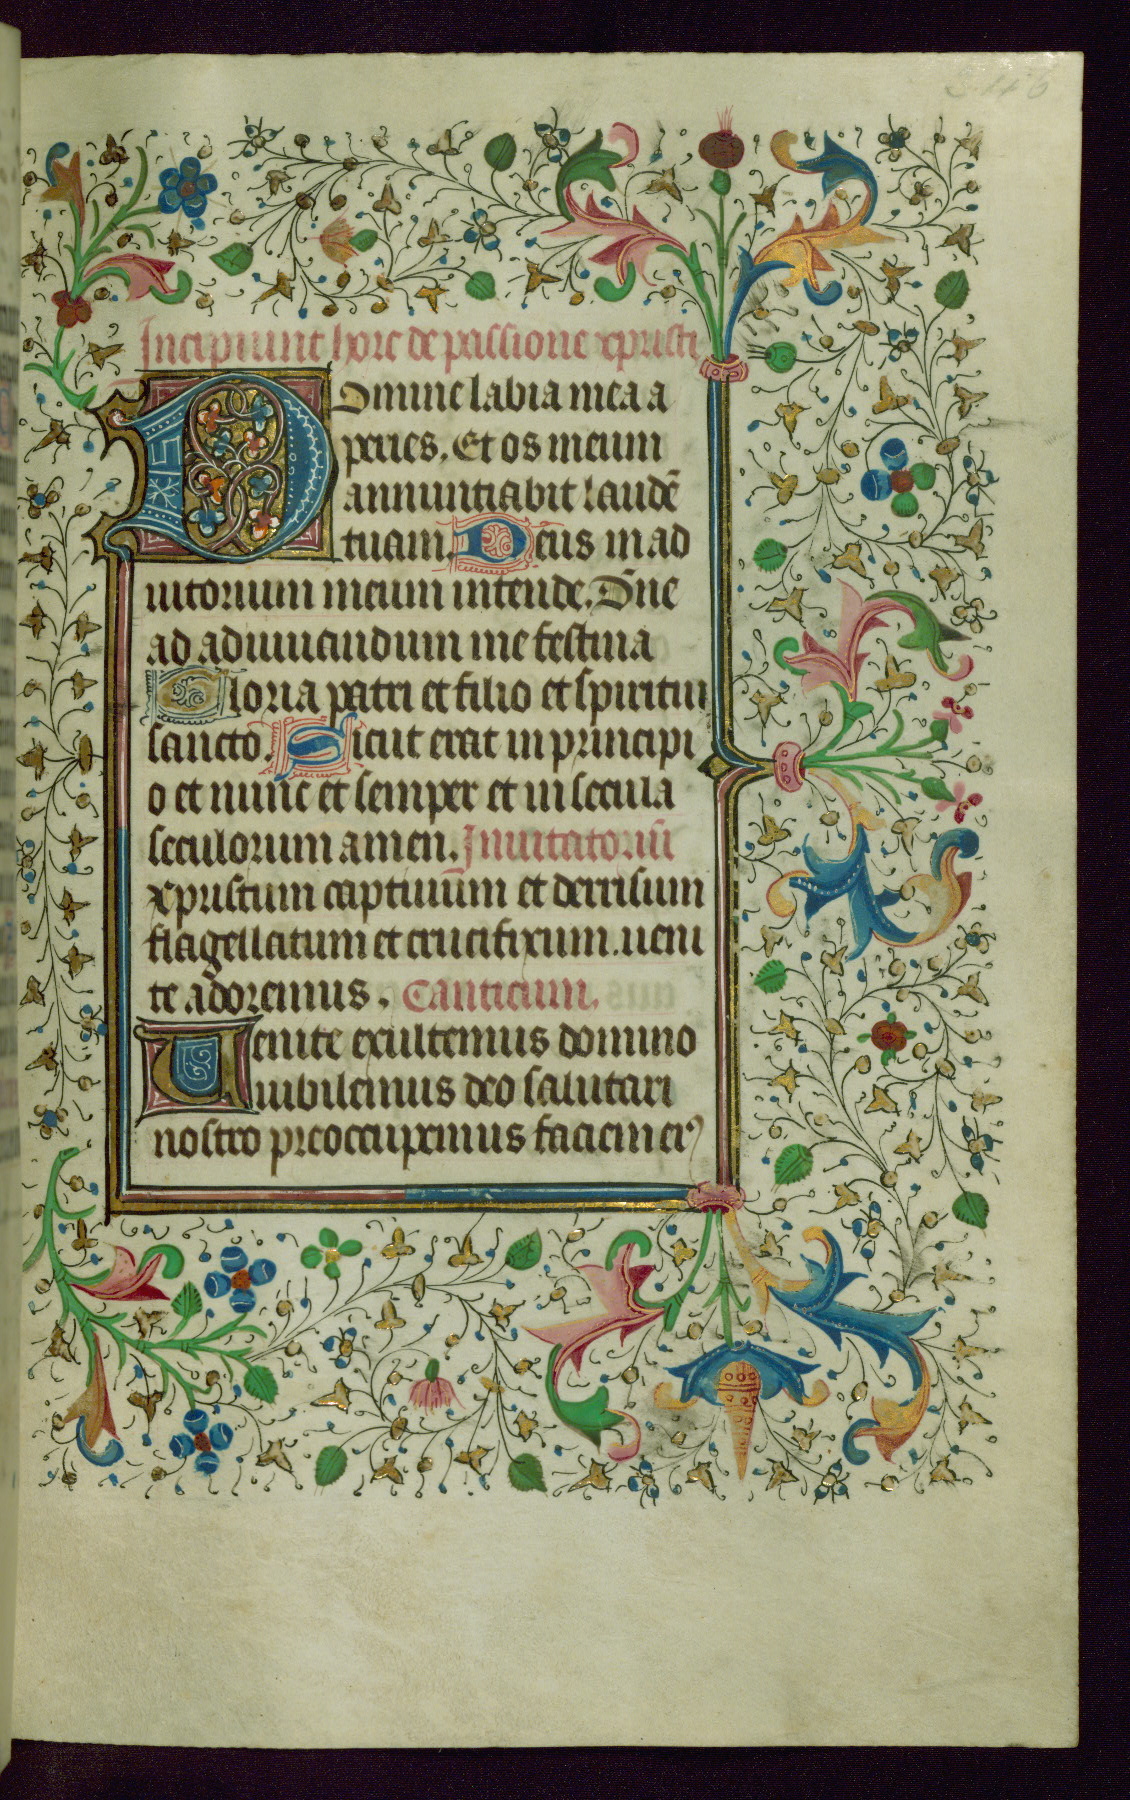 Incipiunt hore de passione xpristi
Domine labia mea a
peries. Et os meum
annuntiabit laudē
tuam. Deus in ad
iutorium meum intende. Dn̄e
ad adiuuandum me festina
Gloria patri et filio et spiritui
sancto. Sicut erat in principi
o et nunc et semper et in secula
seculorum amen. Inuitatoriū
xpristum captiuum et derrisum
flagellatum et crucifixum. ueni
te adoremus. Canticum.
Uenite exultemus domino
iubilemus deo salutari
nostro preoccupemus faciem eiꝰ